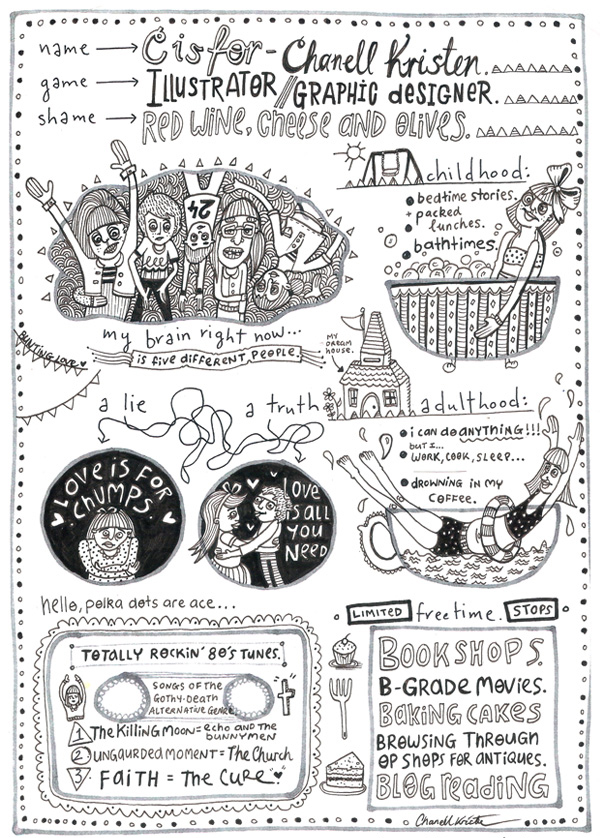 name → C is for - Chanell Kristen.
game → ILLUSTRATOR//GRAPHIC designer.
shame → RED WINE, cheese AND OLIVES.
childhood:
bedtime stories.
+ packed
lunches.
bathtimes.
24
my brain right now...
is five different people.
BUNTING LOVE
MY
DREAM
HOUSE.
a lie
a truth
adulthood:
i can do ANYTHING!!!
but I...
WORK, COOK, SLEEP...
DROWNING IN MY
COFFEE.
LOVE iS FOR
CHUMPS
LOVE
IS ALL
YOU
NEED
hello, polka dots are ace...
TOTALLY ROCKIN' 80'S TUNES.
SONGS OF THE
GOTHY-DEATH
ALTERNATIVE GENRE
1 The Killing Moon = echo and the
bunnymen
2 UNGAURDED MOMENT = The Church
3 FAITH = The CURE.
LIMITED free time. STOPS
BOOKSHOPS.
B-GRADE MOVIES.
BAKING CAKES
BROWSING THROUGH
OP SHOPS FOR ANTIQUES.
BLOG reading
Chanell Kristen